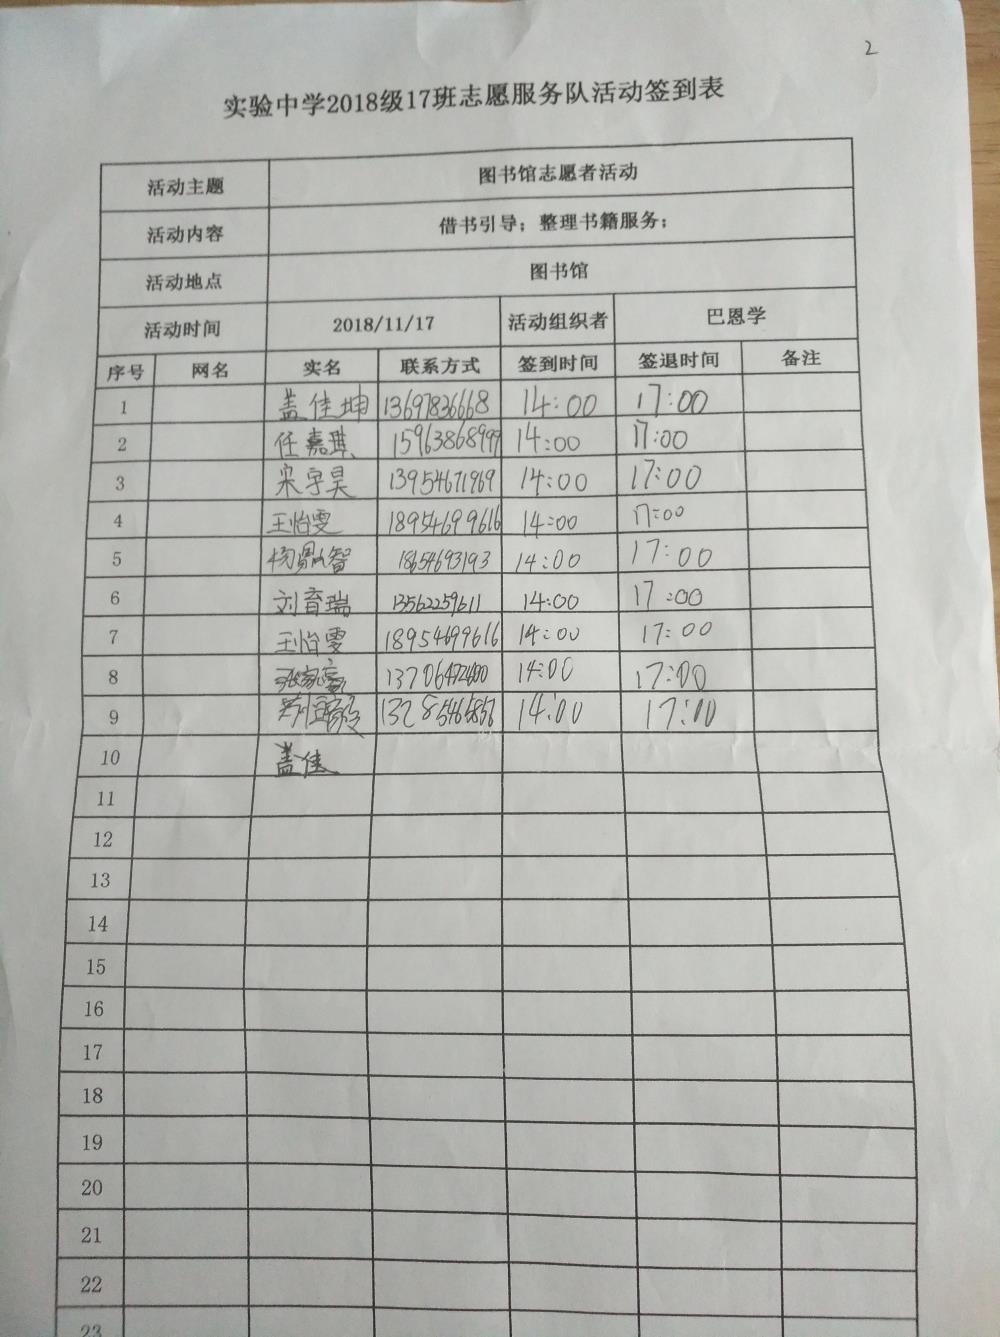 2
实验中学2018级17班志愿服务队活动签到表
活动主题 图书馆志愿者活动
活动内容 借书引导；整理书籍服务；
活动地点 图书馆
活动时间 2018/11/17 活动组织者 巴恩学
序号 网名 实名 联系方式 签到时间 签退时间 备注
1 盖佳坤 13697836668 14:00 17:00
2 任嘉琪 15963868999 14:00 17:00
3 宋宇昊 13954671969 14:00 17:00
4 王怡雯 18954699616 14:00 17:00
5 杨鼎智 18654693193 14:00 17:00
6 刘育瑞 13562259611 14:00 17:00
7 王怡雯 18954699616 14:00 17:00
8 14:00 17:00
9 14:00 17:00
10 盖佳
11
12
13
14
15
16
17
18
19
20
21
22
23